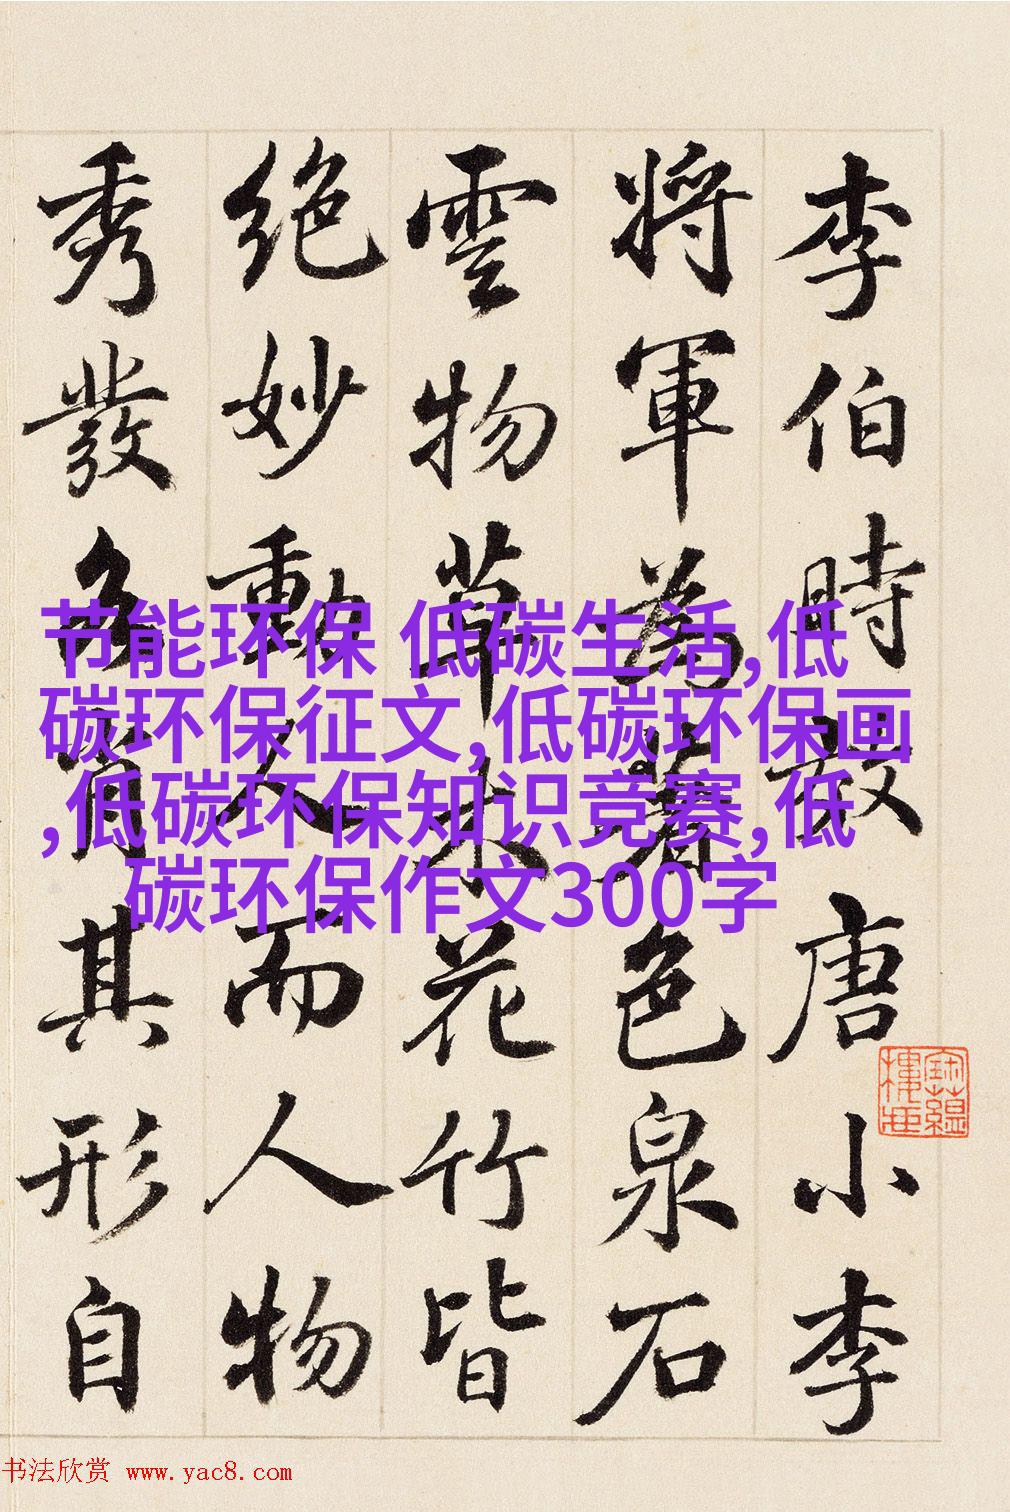 李伯時效唐小李
將軍為著色泉石
雲物草木花竹皆
絕妙動人而人物
秀發各肖其形自
节能环保 低碳生活,低
碳环保征文,低碳环保画
,低碳环保知识竞赛,低
碳环保作文300字
书法欣赏 www.yac8.com